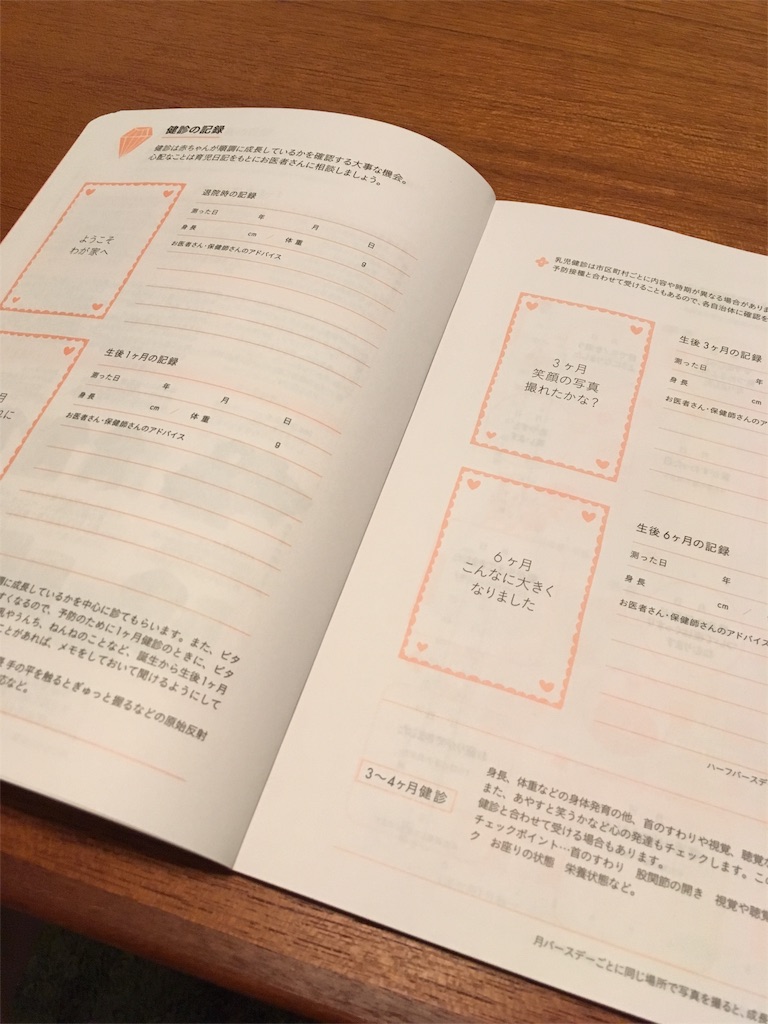 健診の記録
健診は赤ちゃんが順調に成長しているかを確認する大事な機会。
心配なことは育児日記をもとにお医者さんに相談しましょう。
ようこそ
わが家へ
退院時の記録
測った日 年 月 日
身長 cm / 体重 g
お医者さん・保健師さんのアドバイス
月
れに
生後1ヶ月の記録
測った日 年 月 日
身長 cm / 体重 g
お医者さん・保健師さんのアドバイス
調に成長しているかを中心に診てもらいます。また、ビタ
すくなるので、予防のために1ヶ月健診のときに、ビタ
乳やうんち、ねんねのことなど、誕生から生後1ヶ月
ことがあれば、メモをしておいて聞けるようにして
手の平を触るとぎゅっと握るなどの原始反射
応など。
乳児健診は市区町村ごとに内容や時期が異なる場合があり
予防接種と合わせて受けることもあるので、各自治体に確認を
3ヶ月
笑顔の写真
撮れたかな?
生後3ヶ月の記録
測った日 年
身長 cm
お医者さん・保健師さんのア
6ヶ月
こんなに大きく
なりました
生後6ヶ月の記録
測った日 年
身長 cm /
お医者さん・保健師さんのアドバイス
ハーフバースデ
3〜4ヶ月健診
身長、体重などの身体発育の他、首のすわりや視覚、聴覚
また、あやすと笑うかなど心の発達もチェックします。この
健診と合わせて受ける場合もあります。
チェックポイント…首のすわり 股関節の開き 視覚や聴覚
ク お座りの状態 栄養状態など。
月バースデーごとに同じ場所で写真を撮ると、成長